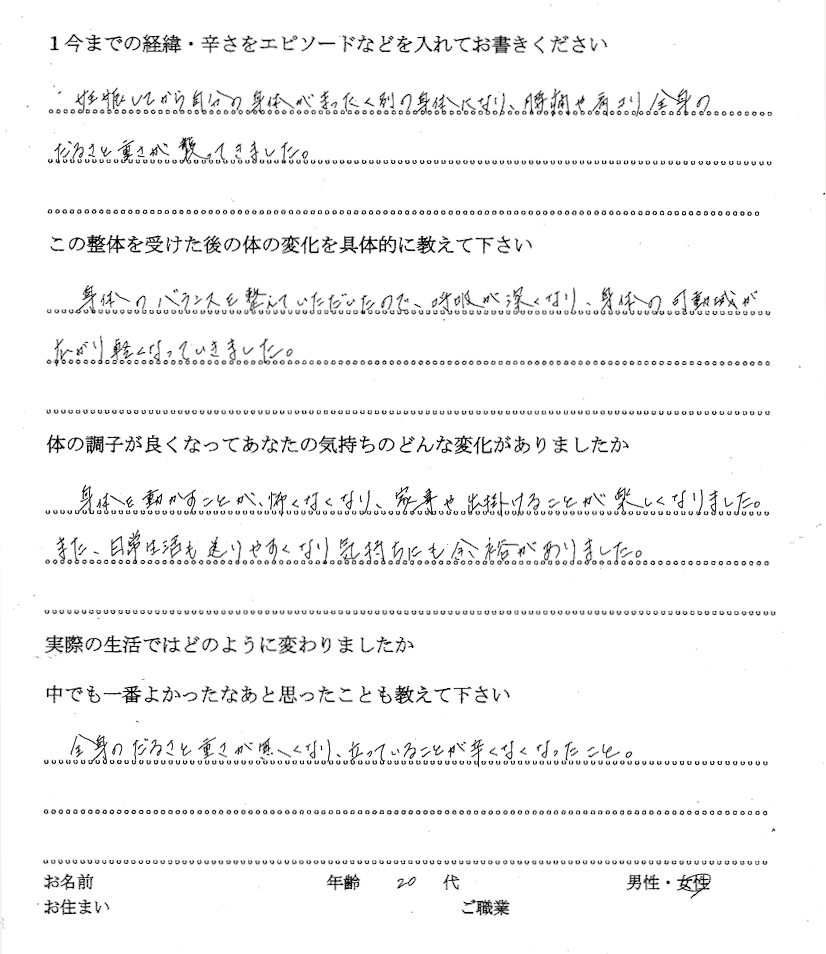 1今までの経緯・辛さをエピソードなどを入れてお書きください
妊娠してから自分の身体がまったく別の身体になり、腰痛や肩コリ全身の
だるさと重さが襲ってきました。
この整体を受けた後の体の変化を具体的に教えて下さい
身体のバランスを整えていただいたので、呼吸が深くなり、身体の可動域が
広がり軽くなっていきました。
体の調子が良くなってあなたの気持ちのどんな変化がありましたか
身体を動かすことが、怖くなくなり、家事や出掛けることが楽しくなりました。
また、日常生活も送りやすくなり気持ちにも余裕がありました。
実際の生活ではどのように変わりましたか
中でも一番よかったなあと思ったことも教えて下さい
全身のだるさと重さが無くなり、立っていることが辛くなくなったこと。
お名前 年齢 20 代 男性・女性
お住まい ご職業